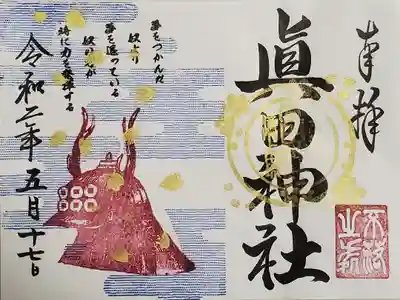 奉拝
眞田神社
不落
之城
夢をつかんだ
奴より
夢を追っている
奴の方が
時に力を発揮する
令和二年五月十七日